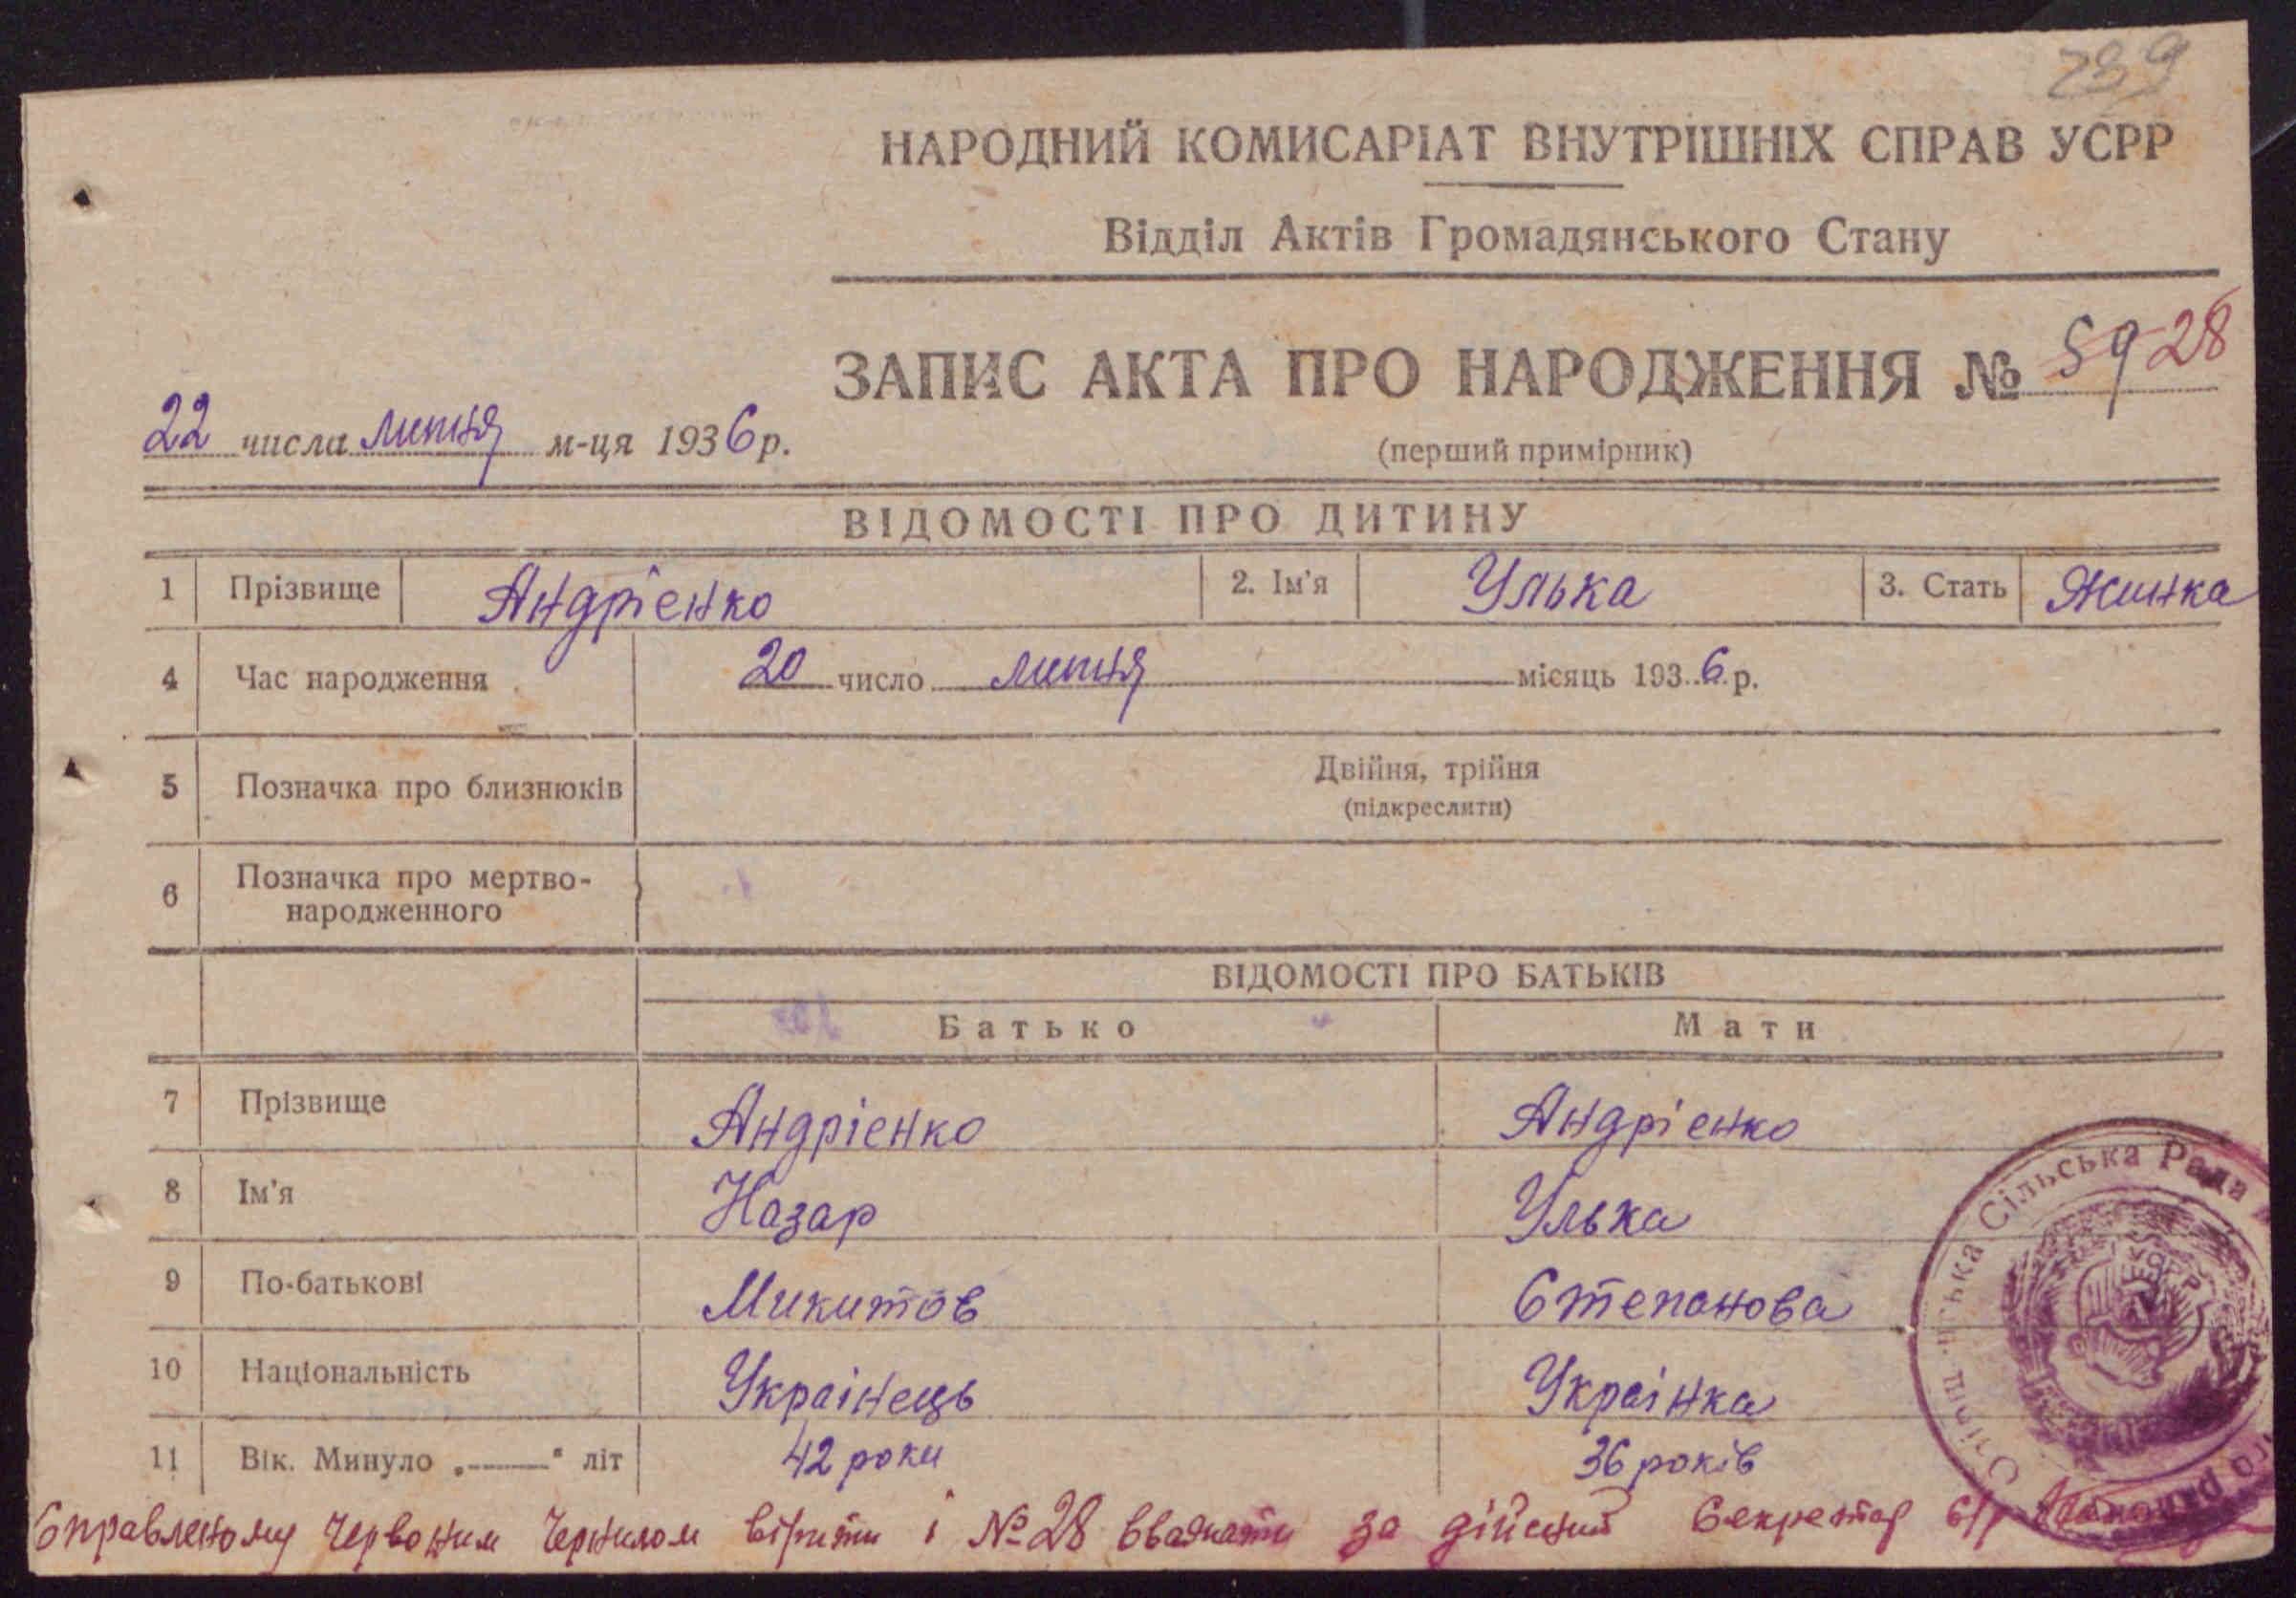 239
НАРОДНИЙ КОМИСАРІАТ ВНУТРІШНІХ СПРАВ УСРР
Відділ Актів Громадянського Стану
ЗАПИС АКТА ПРО НАРОДЖЕННЯ № 59 28
22 числа липня м-ця 1936 р.
(перший примірник)
ВІДОМОСТІ ПРО ДИТИНУ
1 Прізвище Андрієнко 2. Ім'я Улька 3. Стать Жинка
4 Час народження 20 число липня місяць 1936 р.
5 Позначка про близнюків Двійня, трійня
(підкреслити)
6 Позначка про мертво-
народженного
ВІДОМОСТІ ПРО БАТЬКІВ
Батько Мати
7 Прізвище Андрієнко Андрієнко
8 Ім'я Назар Улька
9 По-батькові Микитов Степанова
10 Національність Украінець Украінка
11 Вік. Минуло „——" літ 42 роки 36 років
Сільська Рада
Справленому червоним чернилом вірити і № 28 вважати за дійсний Секретар С/р